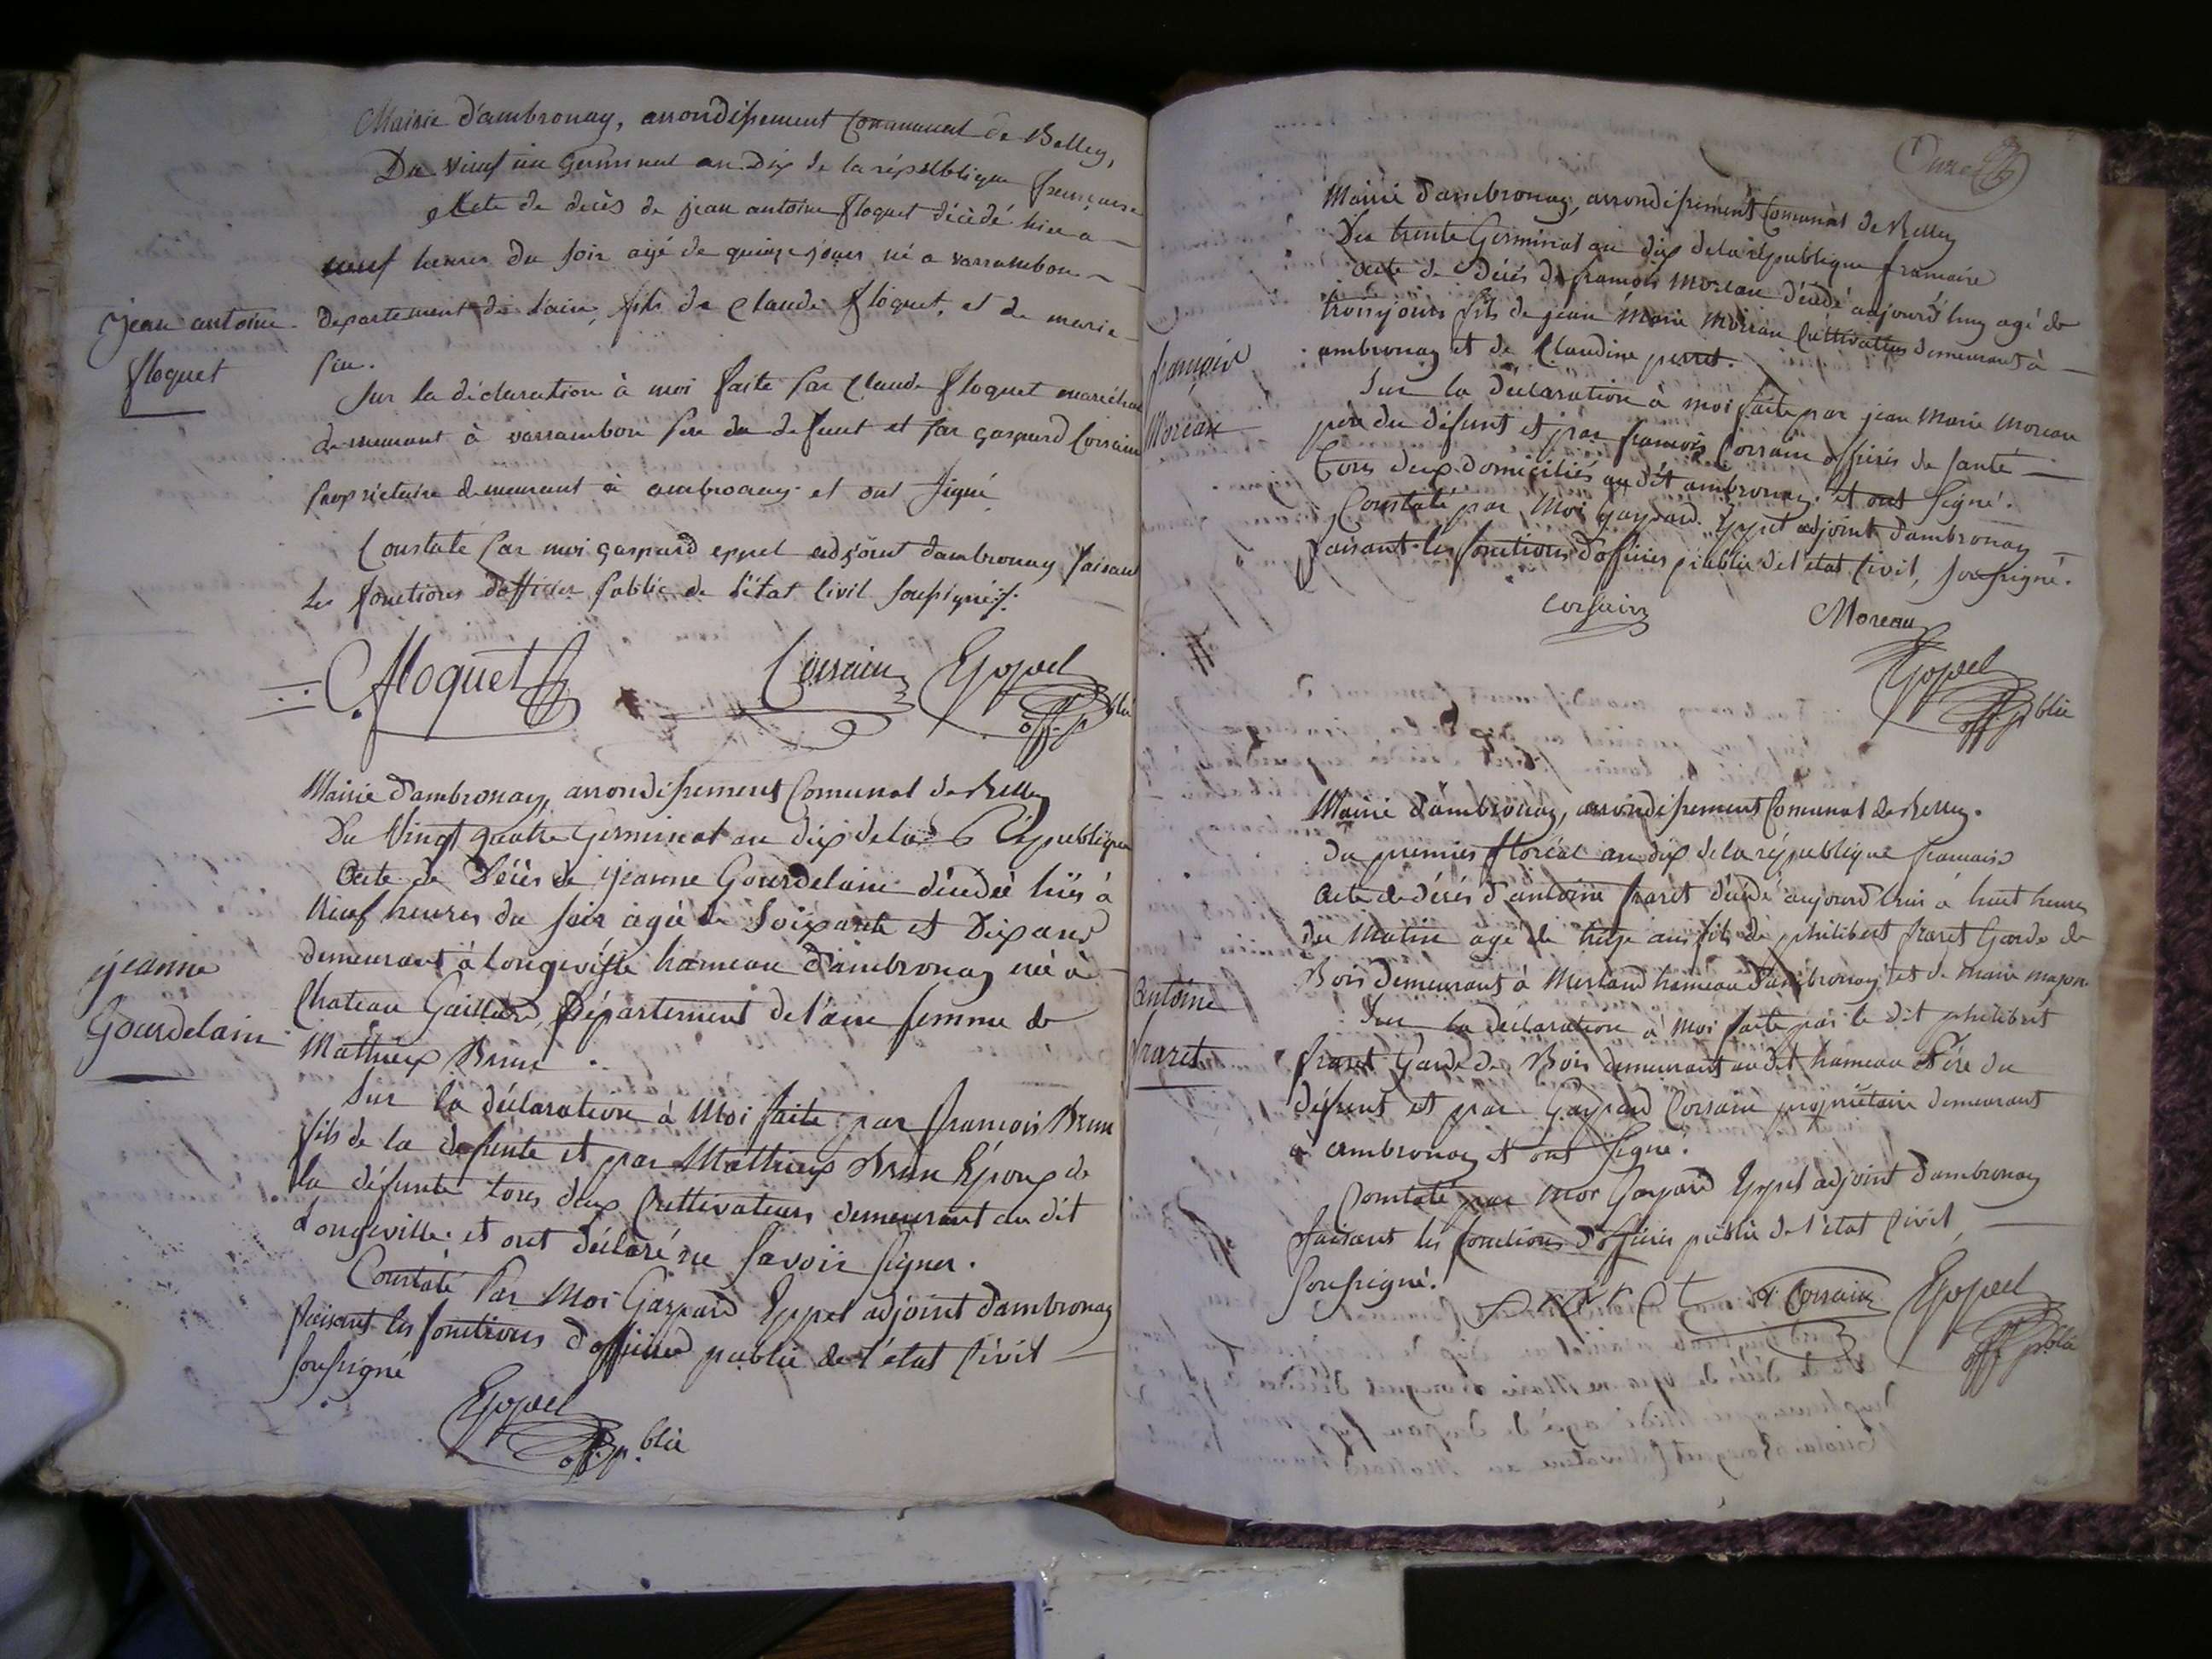 Mairie d'ambronay, arrondissement Communal de Belley,
Du vingt un Germinal an Dix de la république française
Acte de decès de jean antoine floquet décédé hier a
neuf heures du soir agé de quinze jours né a varrambon
departement de l'ain, fils de Claude floquet, et de marie
jean antoine
floquet
Sur la déclaration à moi faite par Claude floquet maréchal
demeurant à varrambon pere du defunt et par gaspard Corsain
propriétaire demeurant à ambronay et ont signé
Constaté par moi gaspard eppel adjoint dambronay faisant
les fonctions d'officier public de l'état Civil soussigné
floquet Corsain Eppel
off. p.blic
Mairie d'ambronay, arrondissement Comunal de Belley
Du Vingt quatre Germinal an dix de la République
Acte de Décès de jeanne Gourdelain décédée hiér à
Neuf heures du soir agée de Soixante et Dix ans
demeurant à Longeville hameau d'ambronay née à
Chateau Gaillard, Département de l'ain femme de
Mathieux Brun.
jeanne
Gourdelain
Sur la déclaration à Moi faite par françois Brun
fils de la defunte et par Mathieux Brun Epoux de
la défunte tous deux Cultivateurs demeurant au dit
Longeville et ont déclaré ne savoir signer.
Constaté Par Moi Gaspard Eppel adjoint d'ambronay
faisant les fonctions d'officier public de l'état Civil
soussigné
Eppel
off. p.blic
Mairie d'ambronay, arrondissement Comunal de Belley
Du trente Germinal an dix de la république francaise
Acte de Décès de françois Moreau décédé aujourd'huy agé de
trois jours fils de jean Marie Moreau Cultivateur demeurant à
ambronay et de Claudine perret.
françois
Moreau
Sur la déclaration à moi faite par jean Marie Moreau
père du défunt et par françois Corsain officier de santé
tous deux domiciliés au dit ambronay. et ont signé.
Constaté par Moi gaspard Eppel adjoint d'ambronay
faisant les fonctions d'officier public de l'état Civil, soussigné.
corsain Moreau
Eppel
off. p.blic
Mairie d'ambronay, arrondissement Comunal de Belley.
du premier floréal an dix de la république francaise
Acte de décès d'antoine fraret décédé aujourd'hui à huit heures
du Matin agé de treize ans fils de philibert fraret Garde de
Bois demeurant à Merland hameau d'ambronay et de marie
antoine
fraret
Sur la déclaration à moi faite par le dit philibert
fraret Garde de Bois demeurant au dit hameau Père du
défunt et par Gaspard Corsain propriétaire demeurant
a ambronay et ont signé.
Constaté par moi Gaspard Eppel adjoint d'ambronay
faisant les fonctions d'officier public de l'état Civil,
soussigné.
Corsain Eppel
off. p.blic